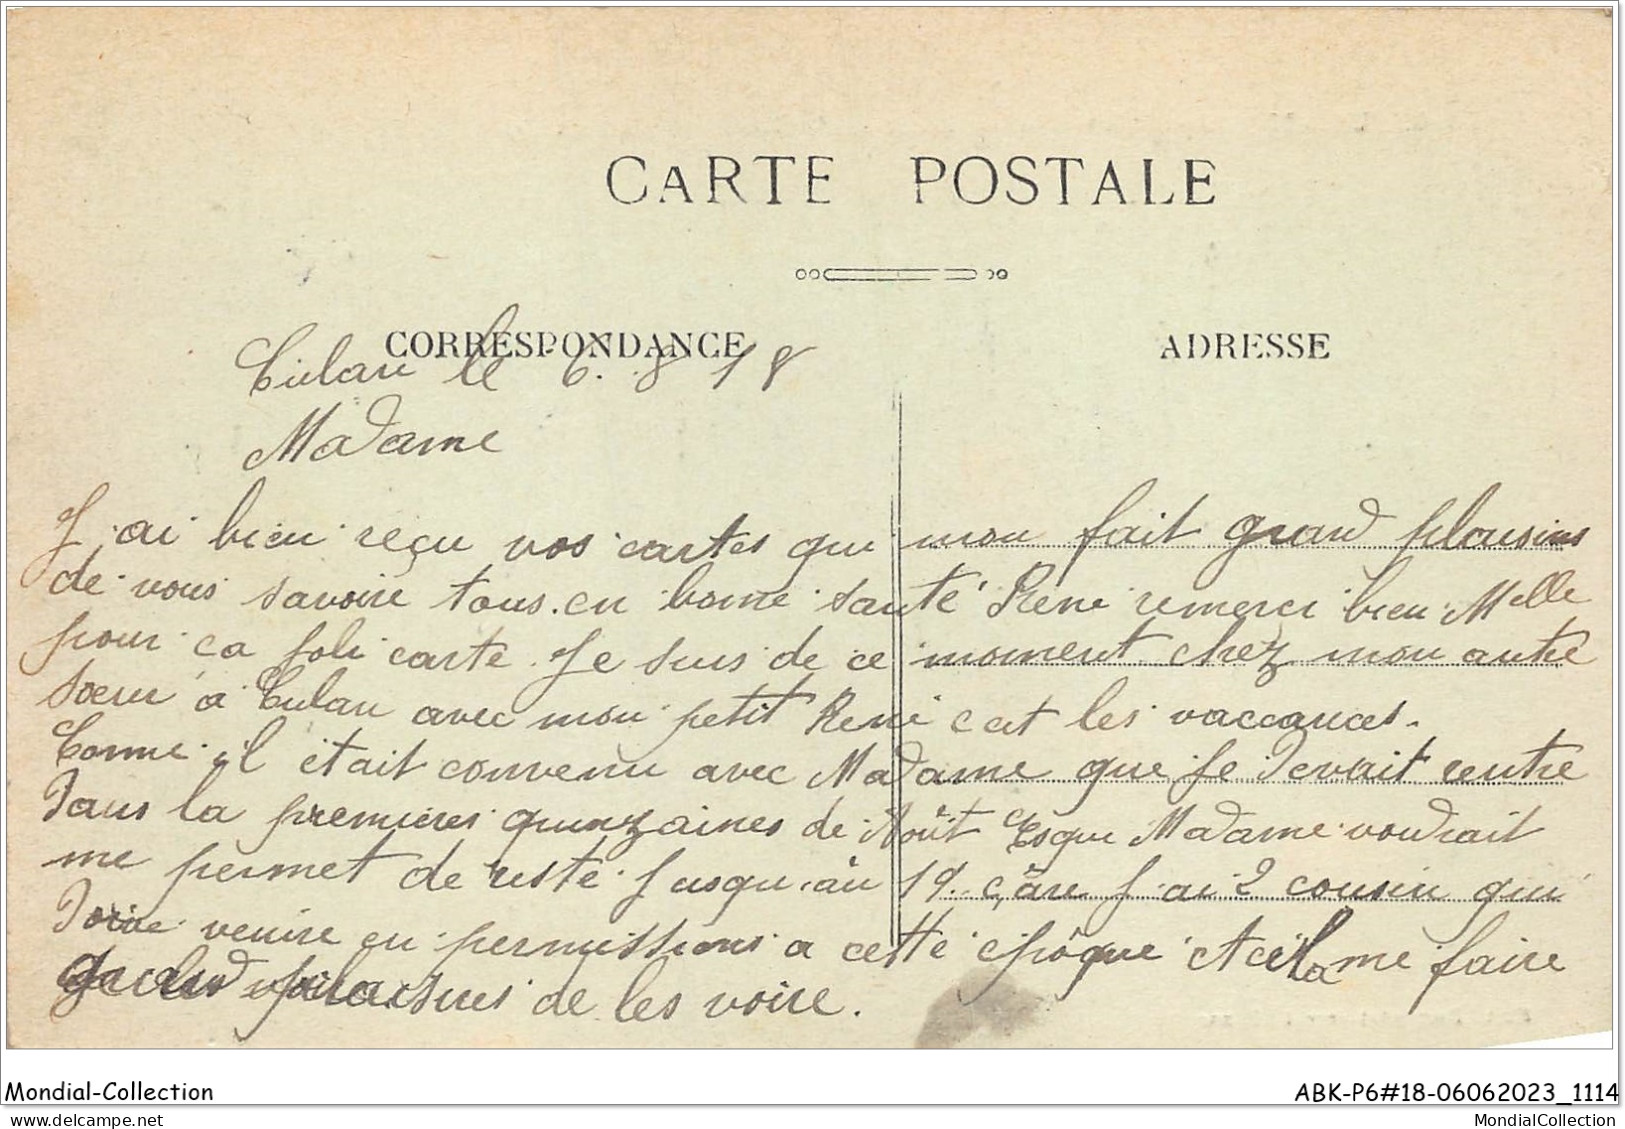 CARTE POSTALE
CORRESPONDANCE
ADRESSE
Culan le 6. 8 18
Madame
J'ai bien reçu vos cartes qui mon fait grand plaisirs
de vous savoire tous en bonne santé René remerci bien Melle
pour ca joli carte. Je suis de ce moment chez mon autre
soeur à Culan avec mon petit René c'est les vaccances.
Comme il était convenu avec Madame que je devait rentre
dans la premières quinzaines de Août Esque Madame voudrait
me permet de reste jusqu'au 19. çare j'ai 2 cousin qui
doive venire en permissions a cette époque et cela me faire
grand de les voire.
Mondial-Collection
ABK-P6#18-06062023_1114
MondialCollection
www.delcampe.net